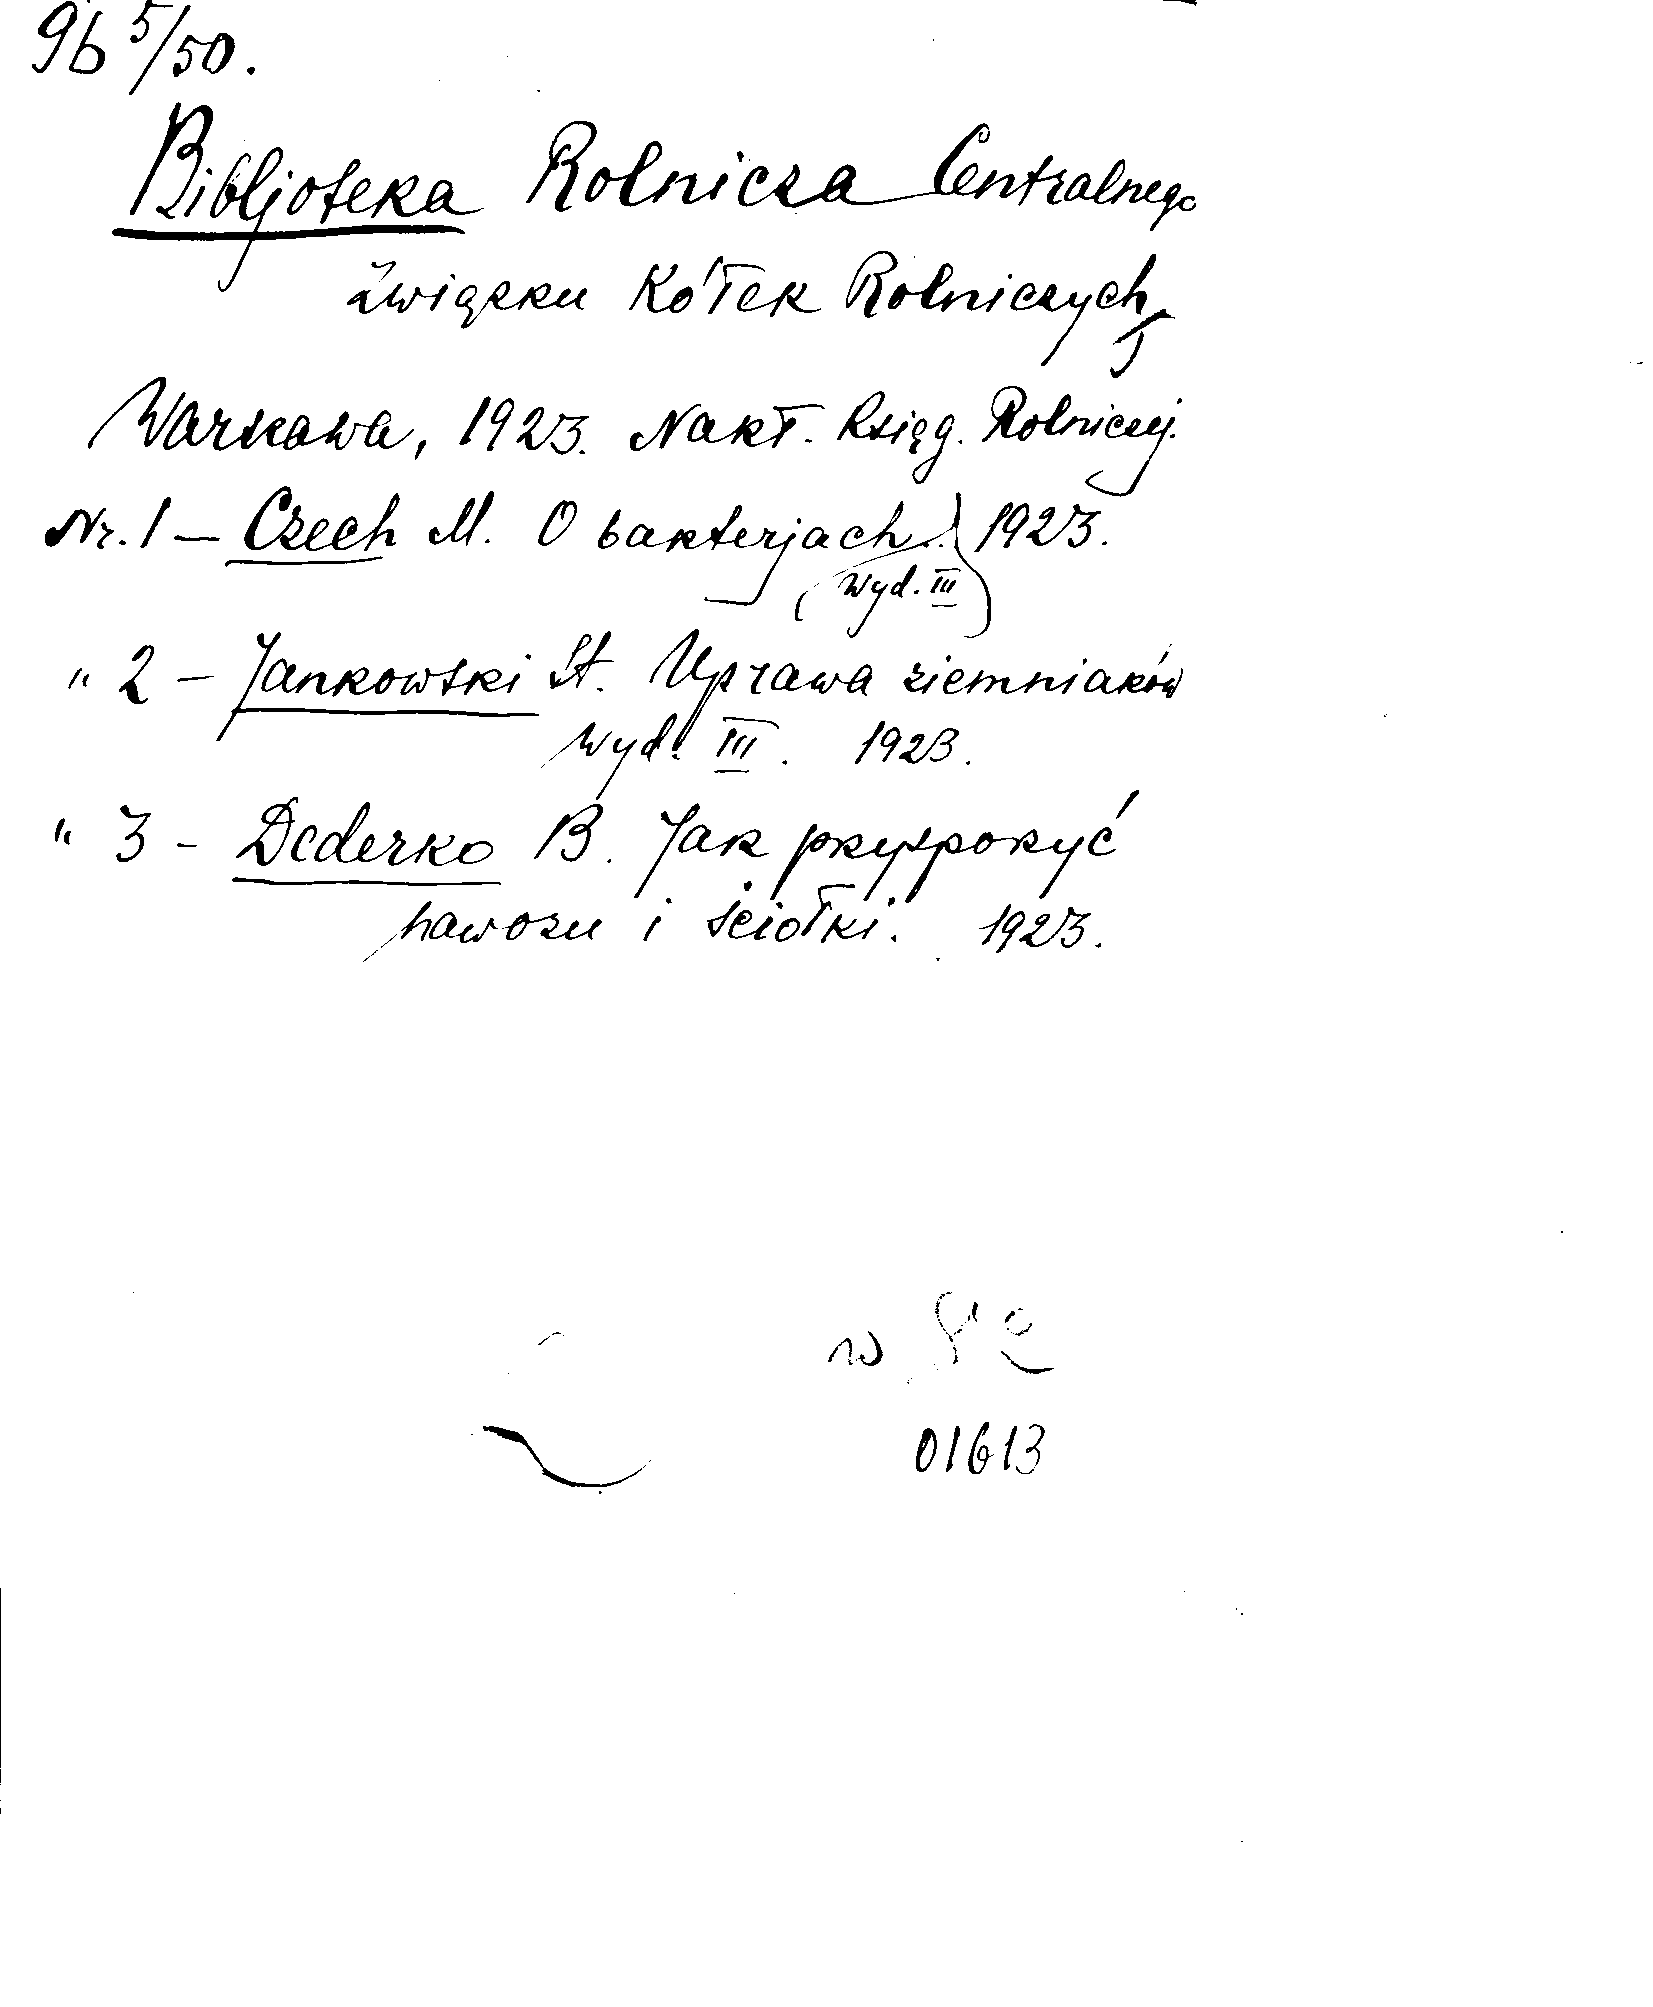 9b 5/50.
Bibljoteka Rolnicza Centralnego
Związku Kółek Rolniczych
Warszawa, 1923. Nakł. Księg. Rolniczej.
Nr. 1 — Czech M. O bakterjach. 1923.
(wyd. III)
" 2 - Jankowski St. Uprawa ziemniaków
wyd. III. 1923.
" 3 - Dederko B. Jak przysporzyć
nawozu i ściołki. 1923.
w
01613